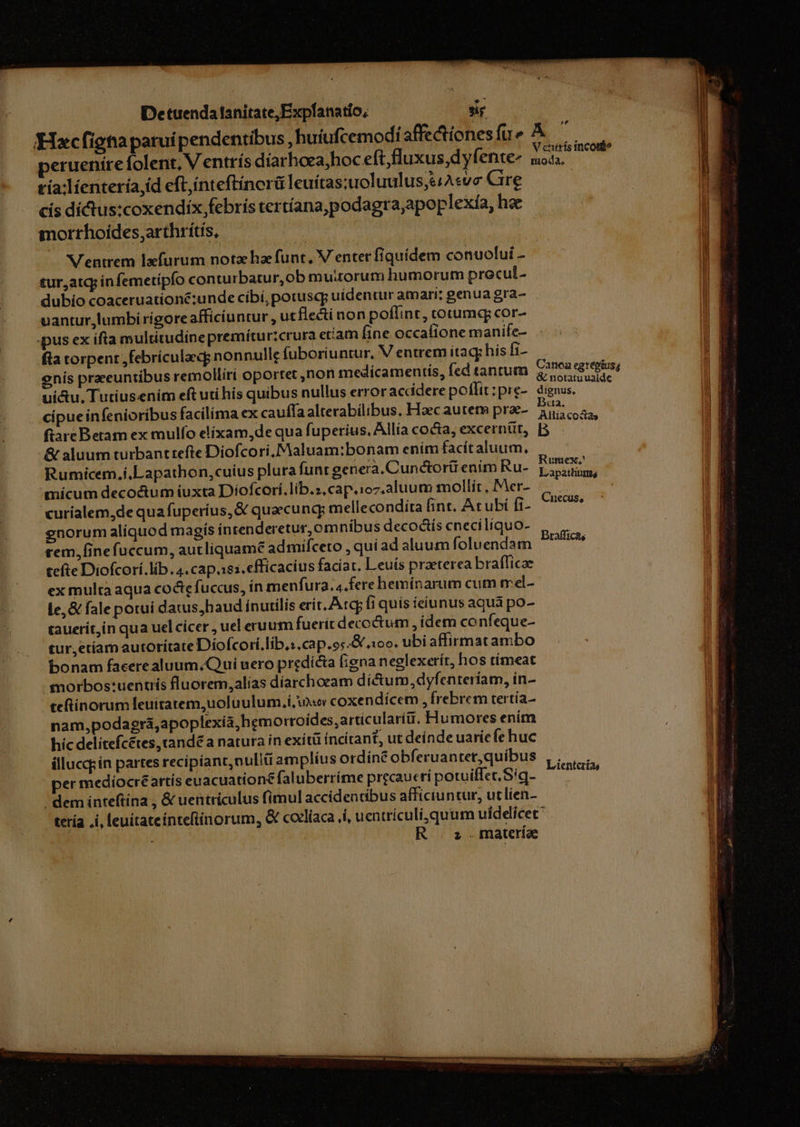 De tuenda ſanitate, Explanatio,
Hæc ſigna parui pendentibus, huiuſcemodi affectiones ſu- A
peruenire ſolent, Ventris diarhœa, hoc eſt, fluxus, dyſente-
Ventris incom-
moda.
ria: lienteria, id eſt, inteſtinorū leuitas: uoluulus,
cis dictus: coxendix, febris tertiana, podagra, apoplexia, hæ
morrhoides, arthritis.
Ventrem læſurum notæ hæ ſunt, Venter ſiquidem conuolui-
tur, atq; in ſemetipſo conturbatur, ob multorum humorum procul-
dubio coaceruationē: unde cibi, potusq; uidentur amari: genua gra-
uantur, lumbi rigore afficiuntur, ut flecti non poſſint, totumq; cor-
pus ex iſta multitudine premitur: crura etiam ſine occaſione manife-
ſta torpent, febriculæq; nonnullę ſuboriuntur. Ventrem itaq; his ſi-
gnis præeuntibus remolliri oportet, non medicamentis, ſed tantum
Canon egregius,
& notatu ualde
dignus.
uictu. Tutius enim eſt uti his quibus nullus error accidere poſſit: pre-
cipue in ſenioribus facilima ex cauſſa alterabilibus. Hæc autem præ-
Beta.
Allia cocta,
ſtare Betam ex mulſo elixam, de qua ſuperius. Allia cocta, excernūt, B
& aluum turbant teſte Dioſcori. Maluam: bonam enim facit aluum.
Rumicem, i. Lapathon, cuius plura ſunt genera. Cunctorū enim Ru-
Rumex.
Lapathium,
micum decoctum iuxta Dioſcori. lib. 2. cap. 107. aluum mollit. Mer-
curialem, de qua ſuperius, & quæcunq; melle condita ſint. At ubi ſi-
Cnecus,
gnorum aliquod magis intenderetur, omnibus decoctis cneci liquo-
rem, ſine ſuccum, aut liquamē admiſceto, qui ad aluum ſoluendam
Braſſica,
teſte Dioſcori. lib. 4. cap. 182. efficacius faciat. Leuis præterea braſſicæ
ex multa aqua coctę ſuccus, in menſura. 4. fere heminarum cum mel-
le, & ſale potui datus, haud inutilis erit. Atq; ſi quis ieiunus aquā po-
tauerit, in qua uel cicer, uel eruum fuerit decoctum, idem conſeque-
tur, etiam autoritate Dioſcori. lib. 2. cap. 95. & 100. ubi affirmat ambo
bonam facere aluum. Qui uero prędicta ſigna neglexerit, hos timeat
morbos: uentris fluorem, alias diarchœam dictum, dyſenteriam, in-
teſtinorum leuitatem, uoluulum, i. coxendicem, frebrem tertia-
nam, podagrā, apoplexiā, hęmorroides, articulariū. Humores enim
hic deliteſcētes, tandē a natura in exitū incitant, ut deinde uarie ſe huc
illucq; in partes recipiant, nullū amplius ordinē obſeruantes, quibus
per mediocrē artis euacuationē ſaluberrime pręcaueri potuiſſet. Siq-
Lienteria,
dem inteſtina, & uentriculus ſimul accidentibus afficiuntur, ut lien-
teria .i. leuitate inteſtinorum, & cœliaca .i. uentriculi, quum uidelicet
R 2 materiæ